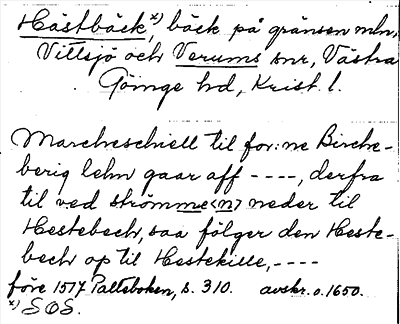 Hästbäck,*) bäck på gränsen mln.
Vittsjö och Verums snr, Västra
Göinge hd, Krist. l.
Marcheschiell til for:ne Birche-
berig lehn gaar aff ----, derfra
til ved strömme<n> neder til
Hestebech, saa fölger den Heste-
bech op til Hestekille, ----
före 1517 Palleboken, s. 310. avskr. o. 1650.
*) SOS.